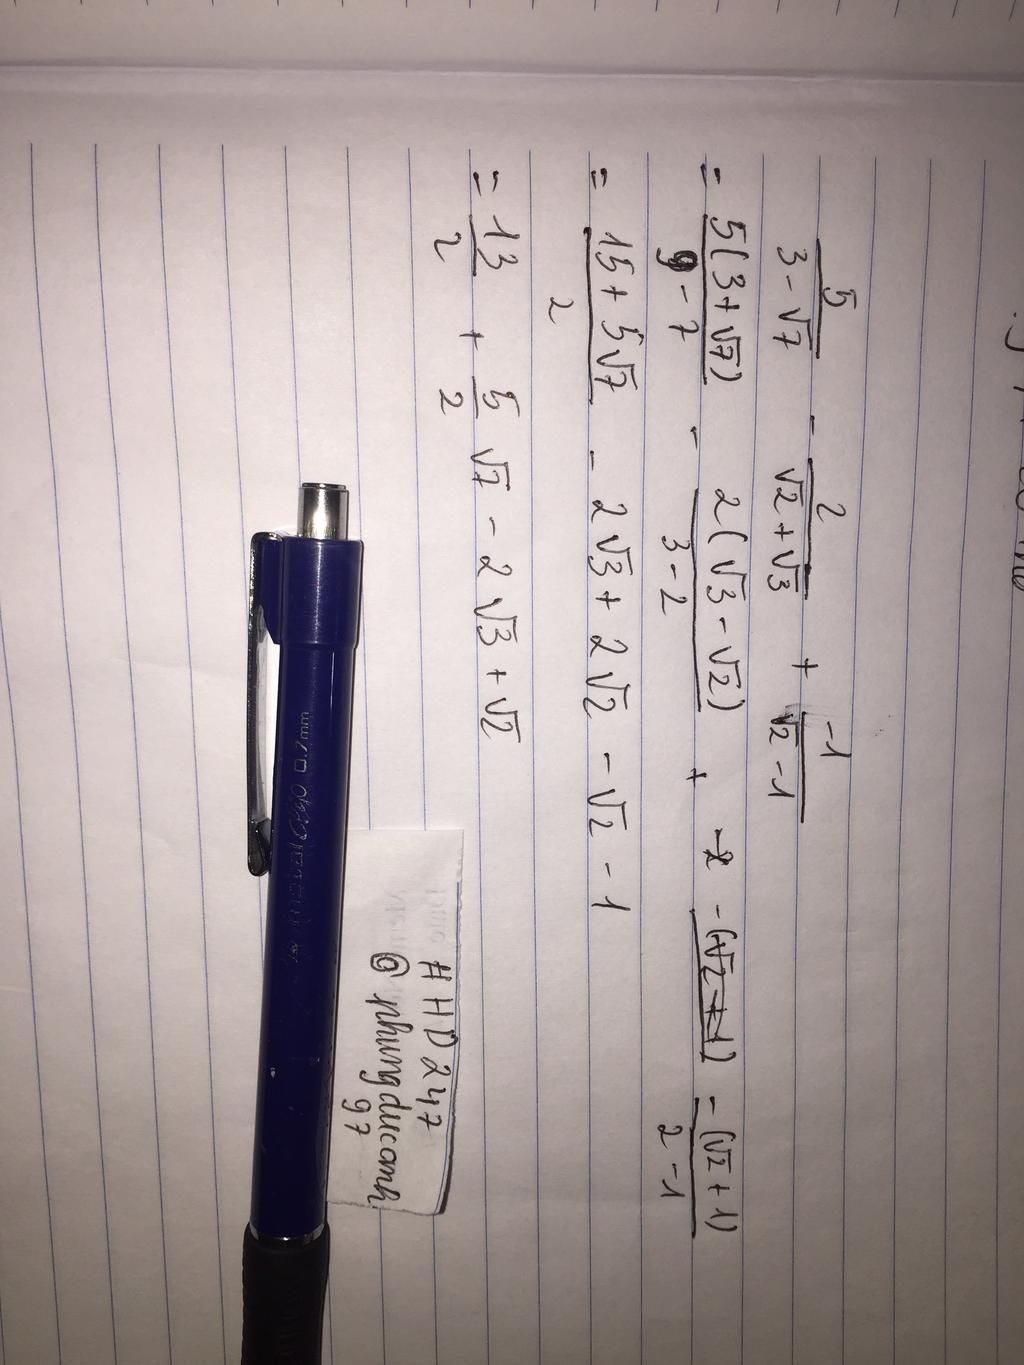 5/(3-√7) - 2/(√2+√3) + -1/(√2-1)
= 5(3+√7)/(9-7) - 2(√3-√2)/(3-2) + -(√2+1)/(2-1)
= (15+5√7)/2 - 2√3 + 2√2 - √2 - 1
= 13/2 + 5/2 √7 - 2√3 + √2
#HD247
@phungducanh
97